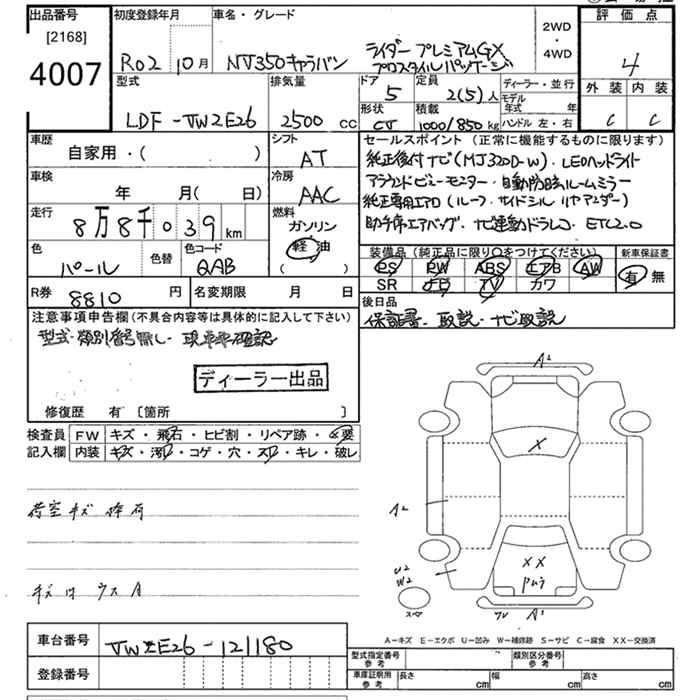 出品番号 初度登録年月 車名・グレード 2WD・4WD 評価点
[2168]
4007
R02 10月 NV350キャラバン ライダー プレミアムGX
プロスタイルパッケージ
4
型式 排気量 ドア 定員 ディーラー・並行 外装 内装
LDF-VW2E26 2500cc 5 2(5)人 モデル年式 年
形状 積載 ハンドル 左・右 C C
CV 1000/850kg
車歴 シフト セールスポイント (正常に機能するものに限ります)
自家用・( ) AT 純正後付ナビ(MJ320D-W)・LEDヘッドライト
車検 冷房 アラウンドビューモニター・自動防眩ルームミラー
年 月( 日) AAC 純正専用エアロ(ルーフ・サイドシル・リヤアンダー)
走行 燃料 助手席エアバッグ・ナビ連動ドラレコ・ETC2.0
8万8千039km ガソリン
軽油
( )
色 色替 色コード 装備品(純正品に限り○をつけてください) 新車保証書
パール QAB PS PW ABS エアB AW 有 無
SR ナビ TV カワ
R券 8810円 名変期限 月 日 後日品
保証書・取説・ナビ取説
注意事項申告欄(不具合内容等は具体的に記入して下さい)
型式・類別番号無し・現車確認
ディーラー出品
修復歴 有 〔箇所 〕
検査員 FW キズ・飛石・ヒビ割・リペア跡・×要
記入欄 内装 キズ・汚れ・コゲ・穴・スレ・キレ・破レ
荷室キズ 有
キズ ウス A
A2
X
A2
U2
W2
XX
A1
A-キズ E-エクボ U-凹み W-補修跡 S-サビ C-腐食 XX-交換済
車台番号 VW2E26-121180
登録番号
型式指定番号 参考 類別区分番号 参考
車庫証明用 参考 長さ cm 幅 cm 高さ cm